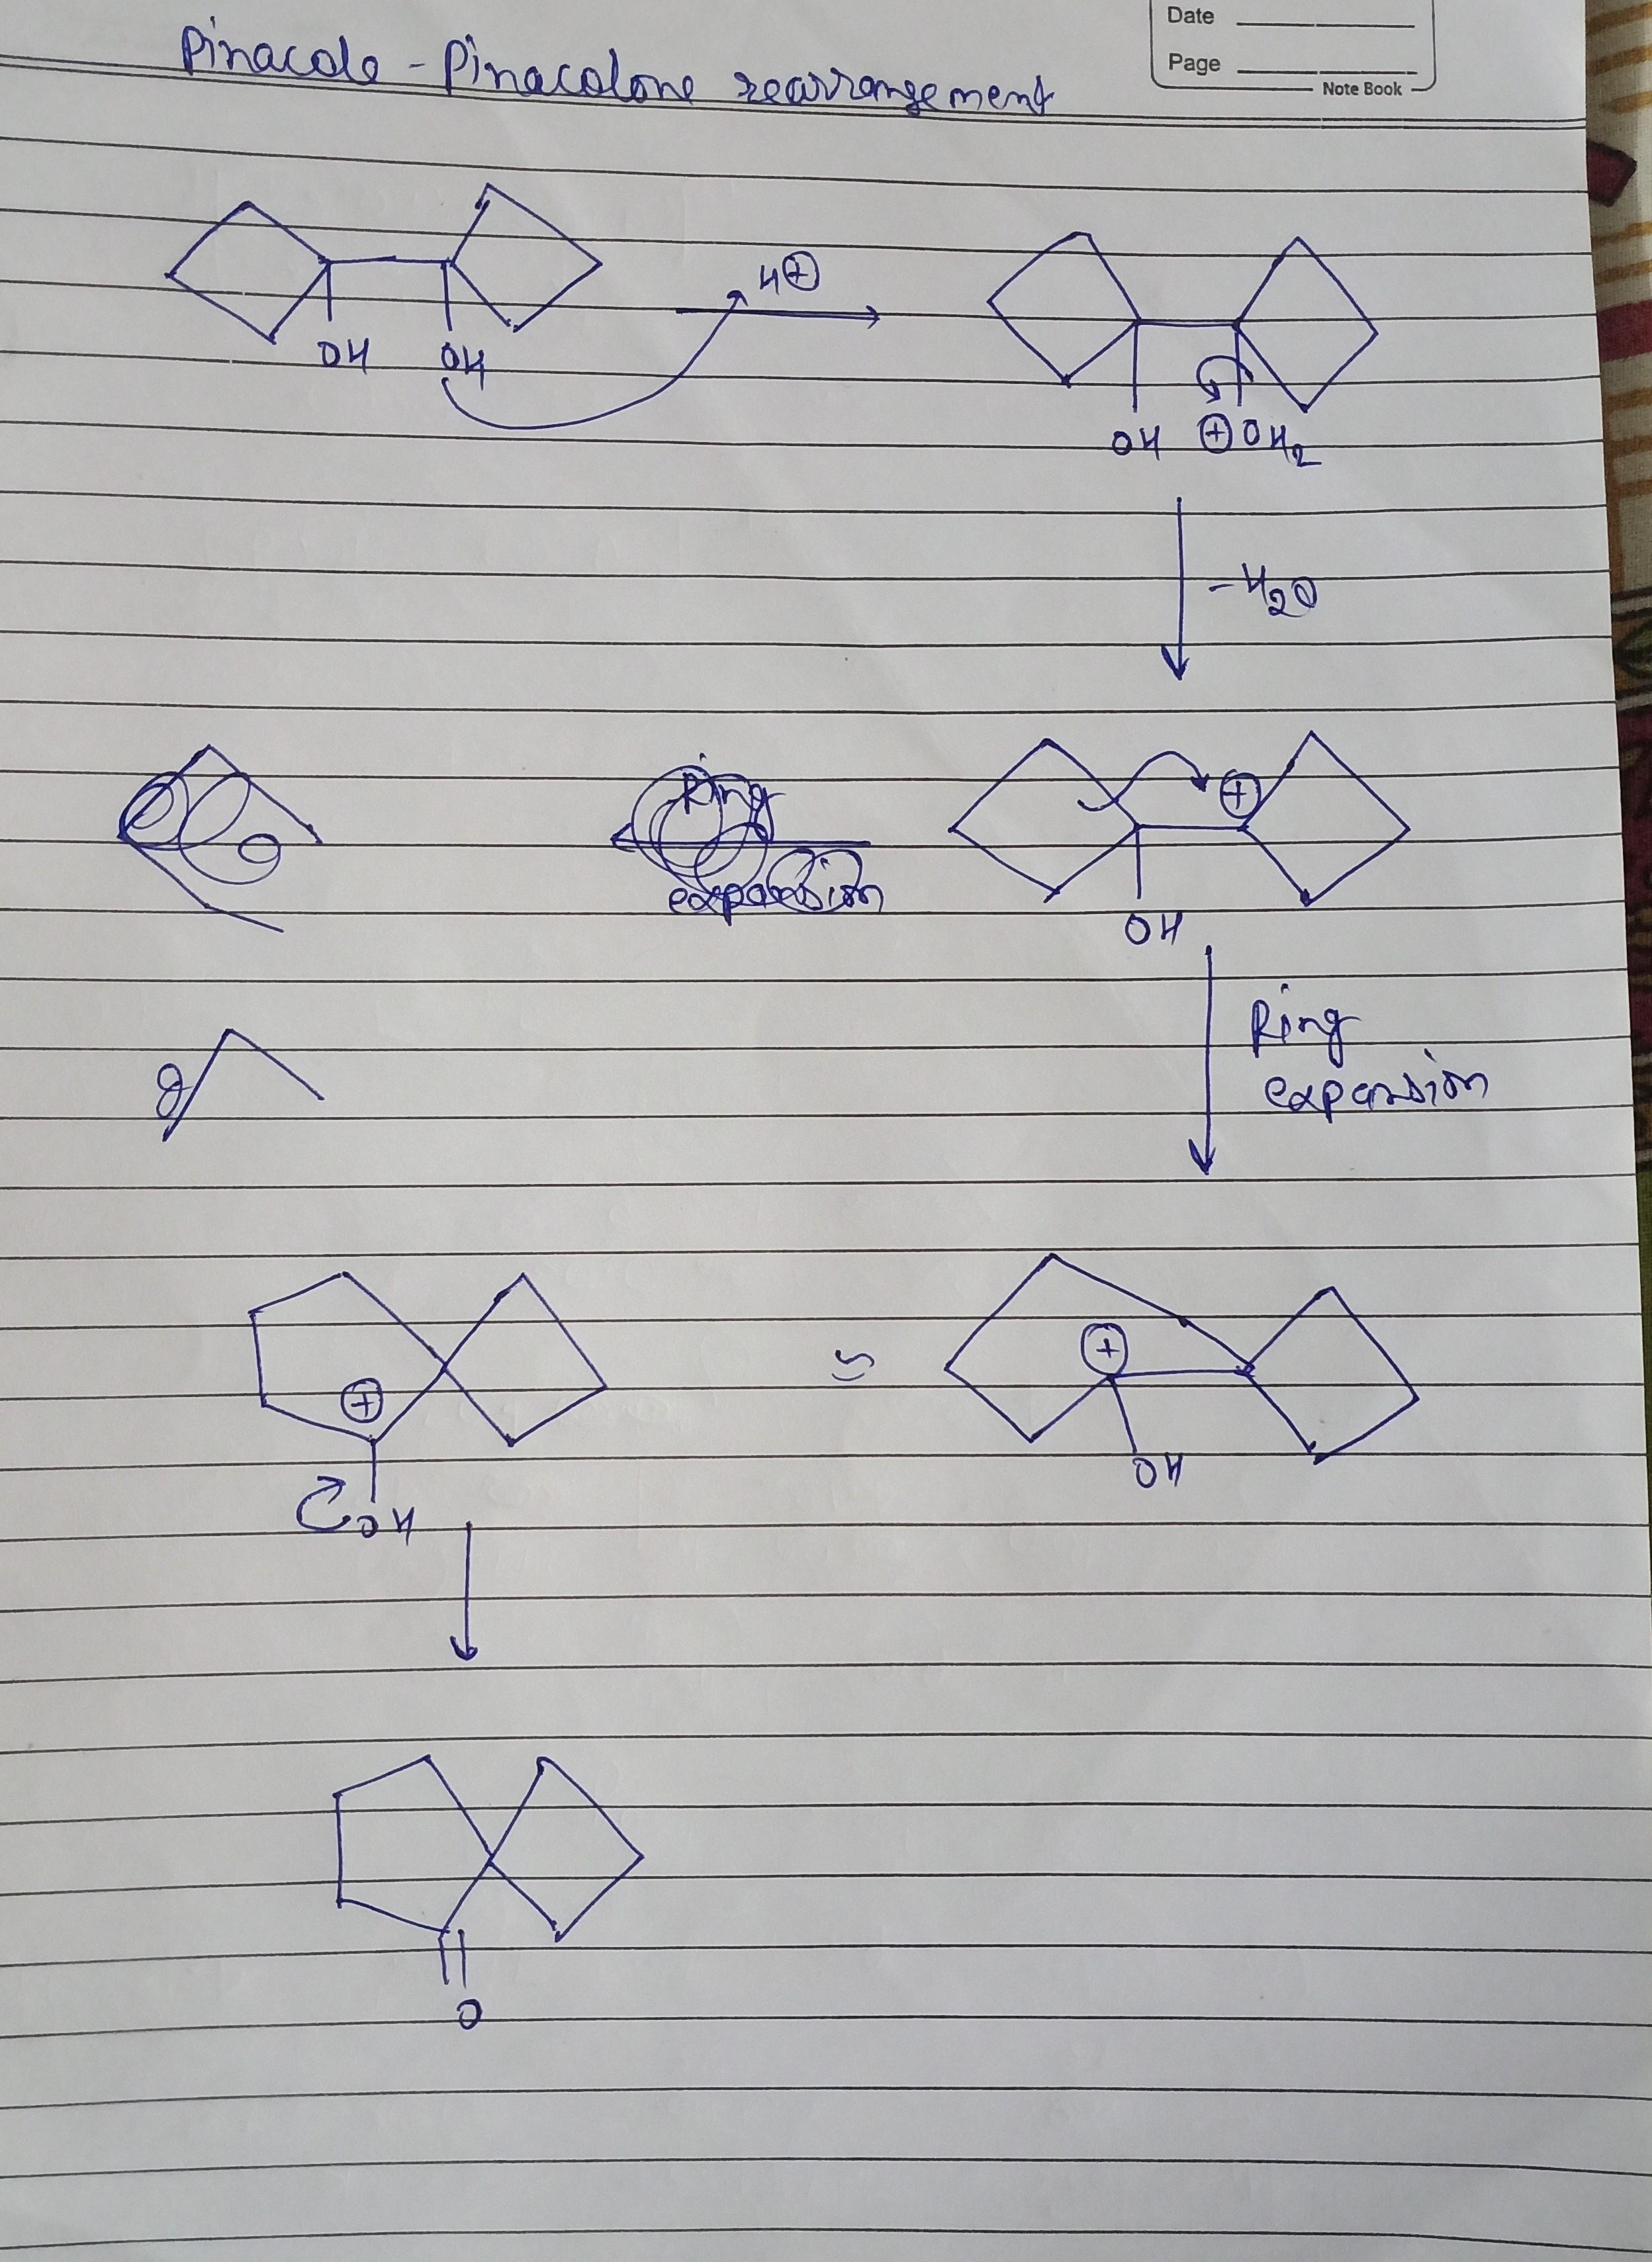 Date
Page
Note Book
Pinacole - Pinacolone rearrangement
H⊕
OH OH
OH ⊕OH2
-H2O
Ring
expansion
⊕
OH
Ring
expansion
⊕ ⊕
OH OH
O